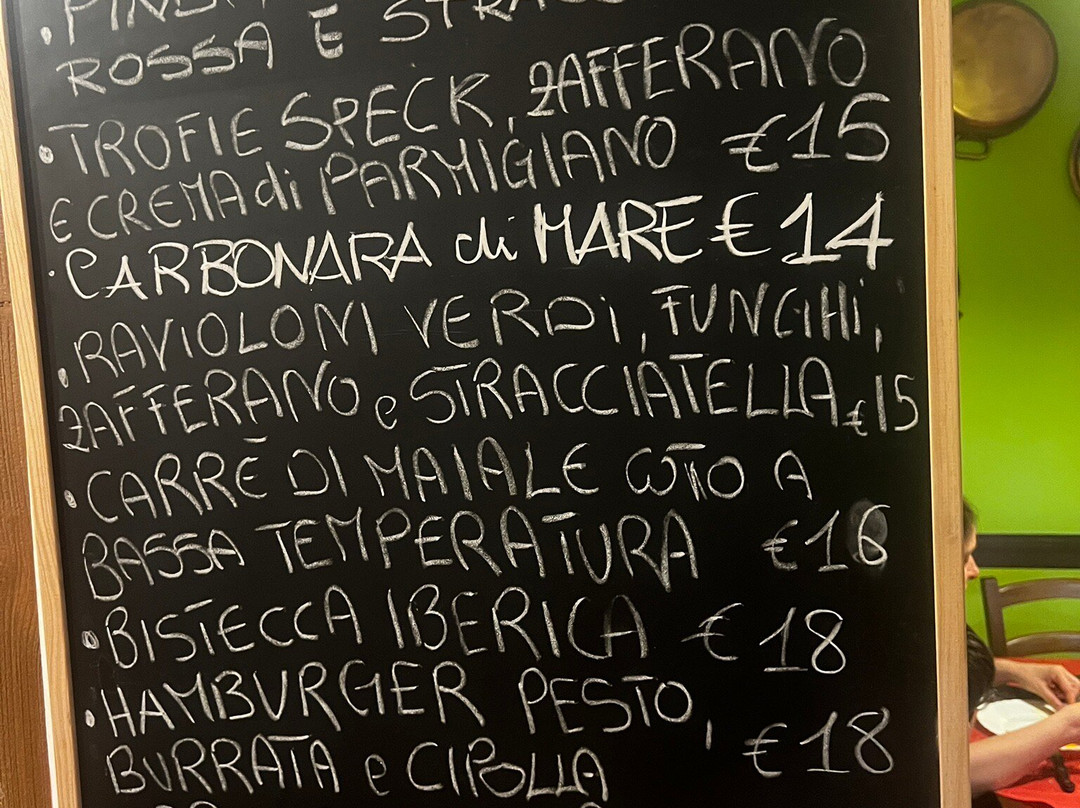 ROSSA E
• TROFIE SPECK, ZAFFERANO
E CREMA di PARMIGIANO €15
• CARBONARA di MARE € 14
• RAVIOLONI VERDI, FUNGHI,
ZAFFERANO e STRACCIATELLA €15
• CARRÈ DI MAIALE COTTO A
BASSA TEMPERATURA €16
• BISTECCA IBERICA € 18
• HAMBURGER PESTO,
BURRATA e CIPOLLA €18